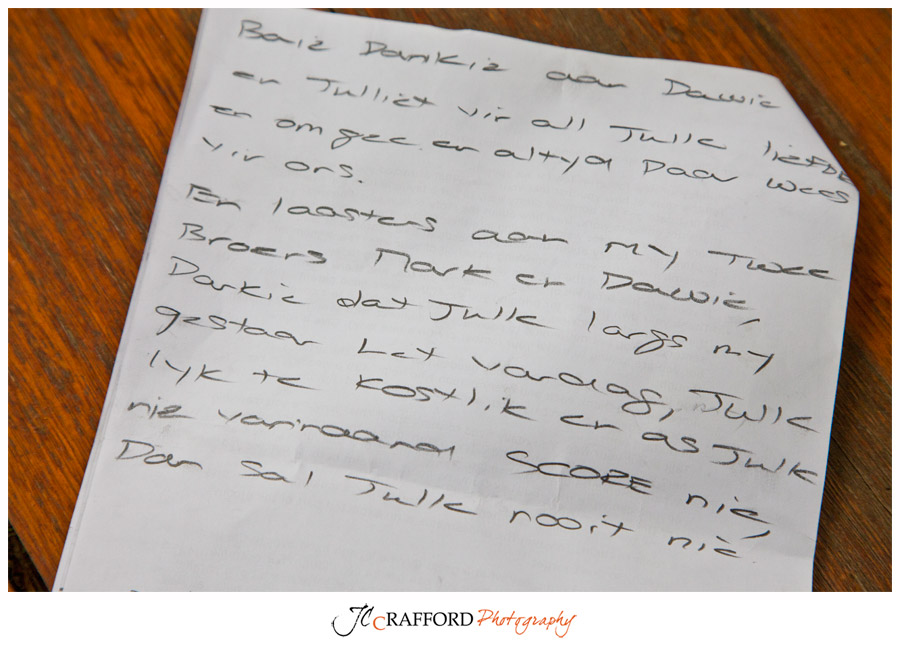 Baie Dankie aan Dawie
en Julliet vir all Julle liefde
en omgee en altyd Daar wees
vir ons.
En laastens aan my Twee
Broers Mark en Dawie,
Dankie dat Julle langs my
gestaan Het vandag, Julle
lyk te kostlik en as Julle
nie vannaand SCORE nie,
Dan sal Julle nooit nie
JC CRAFFORD Photography